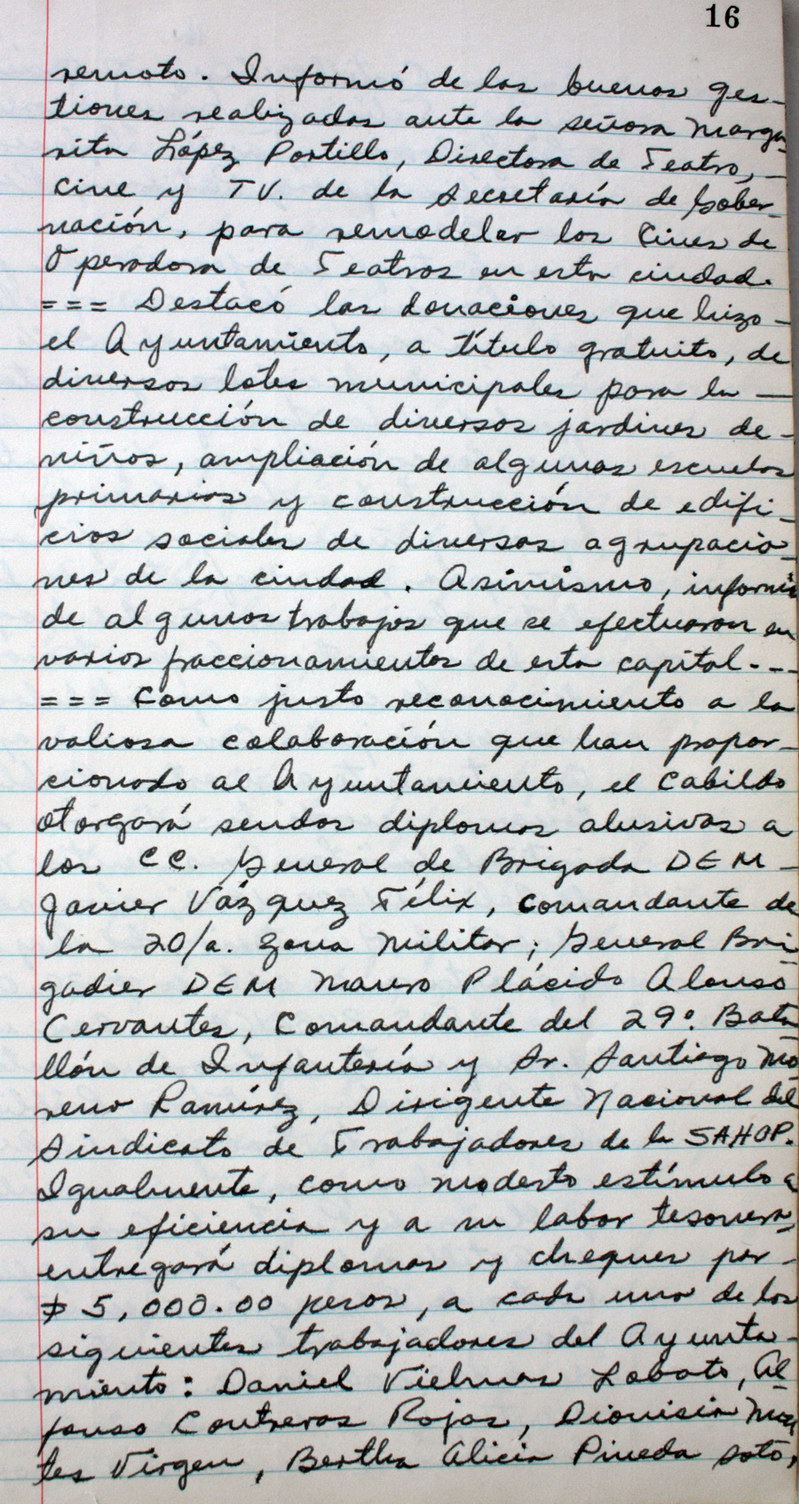 16
remoto. Informó de las buenas ges-
tiones realizadas ante la señora Marga
rita López Portillo, Directora de Teatro, -
Cine y TV. de la Secretaría de Gober-
nación, para remodelar los Cines de
Operadora de Teatros en esta ciudad.
=== Destacó las donaciones que hizo -
el Ayuntamiento, a título gratuito, de
diversos lotes municipales para la -
construcción de diversos jardines de -
niños, ampliación de algunas escuelas
primarias y construcción de edifi-
cios sociales de diversas agrupacio-
nes de la ciudad. Asimismo, informó
de algunos trabajos que se efectuaron en
varios fraccionamientos de esta capital. --
=== Como justo reconocimiento a la
valiosa colaboración que han propor-
cionado al Ayuntamiento, el Cabildo
otorgará sendos diplomas alusivos a
los CC. General de Brigada DEM -
Javier Vázquez Félix, Comandante de
la 20/a. Zona Militar; General Bri
gadier DEM Mauro Plácido Alonso
Cervantes, Comandante del 29º. Bata
llón de Infantería y Sr. Santiago Mo
reno Ramírez, Dirigente Nacional del
Sindicato de Trabajadores de la SAHOP.
Igualmente, como modesto estímulo a
su eficiencia y a su labor tesonera,
entregará diplomas y cheques por -
$ 5,000.00 pesos, a cada uno de los
siguientes trabajadores del Ayunta-
miento: Daniel Vielmas Lobato, Al
fonso Contreras Rojas, Dionisia
tes Virgen, Bertha Alicia Pineda Soto,